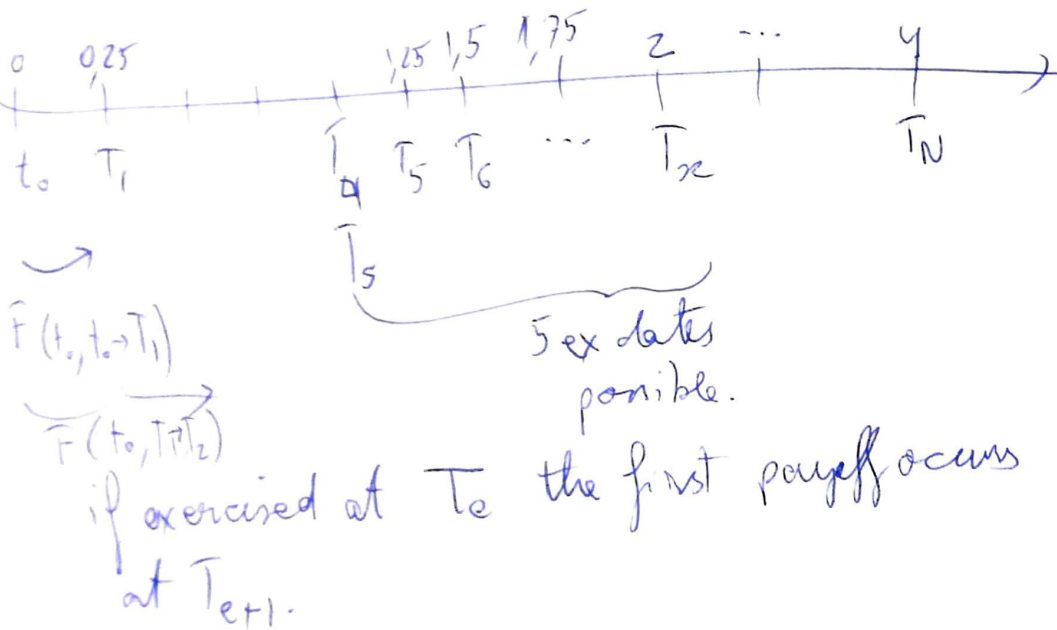 0 0,25 1,25 1,5 1,75 2 ... 4
t₀ T₁ T₄ T₅ T₆ ... Tₓ T_N
T₅
F(t₀, t₀→T₁)
5 ex dates
possible.
F(t₀, T₁→T₂)
if exercised at Tₑ the first payoff occurs
at Tₑ₊₁.